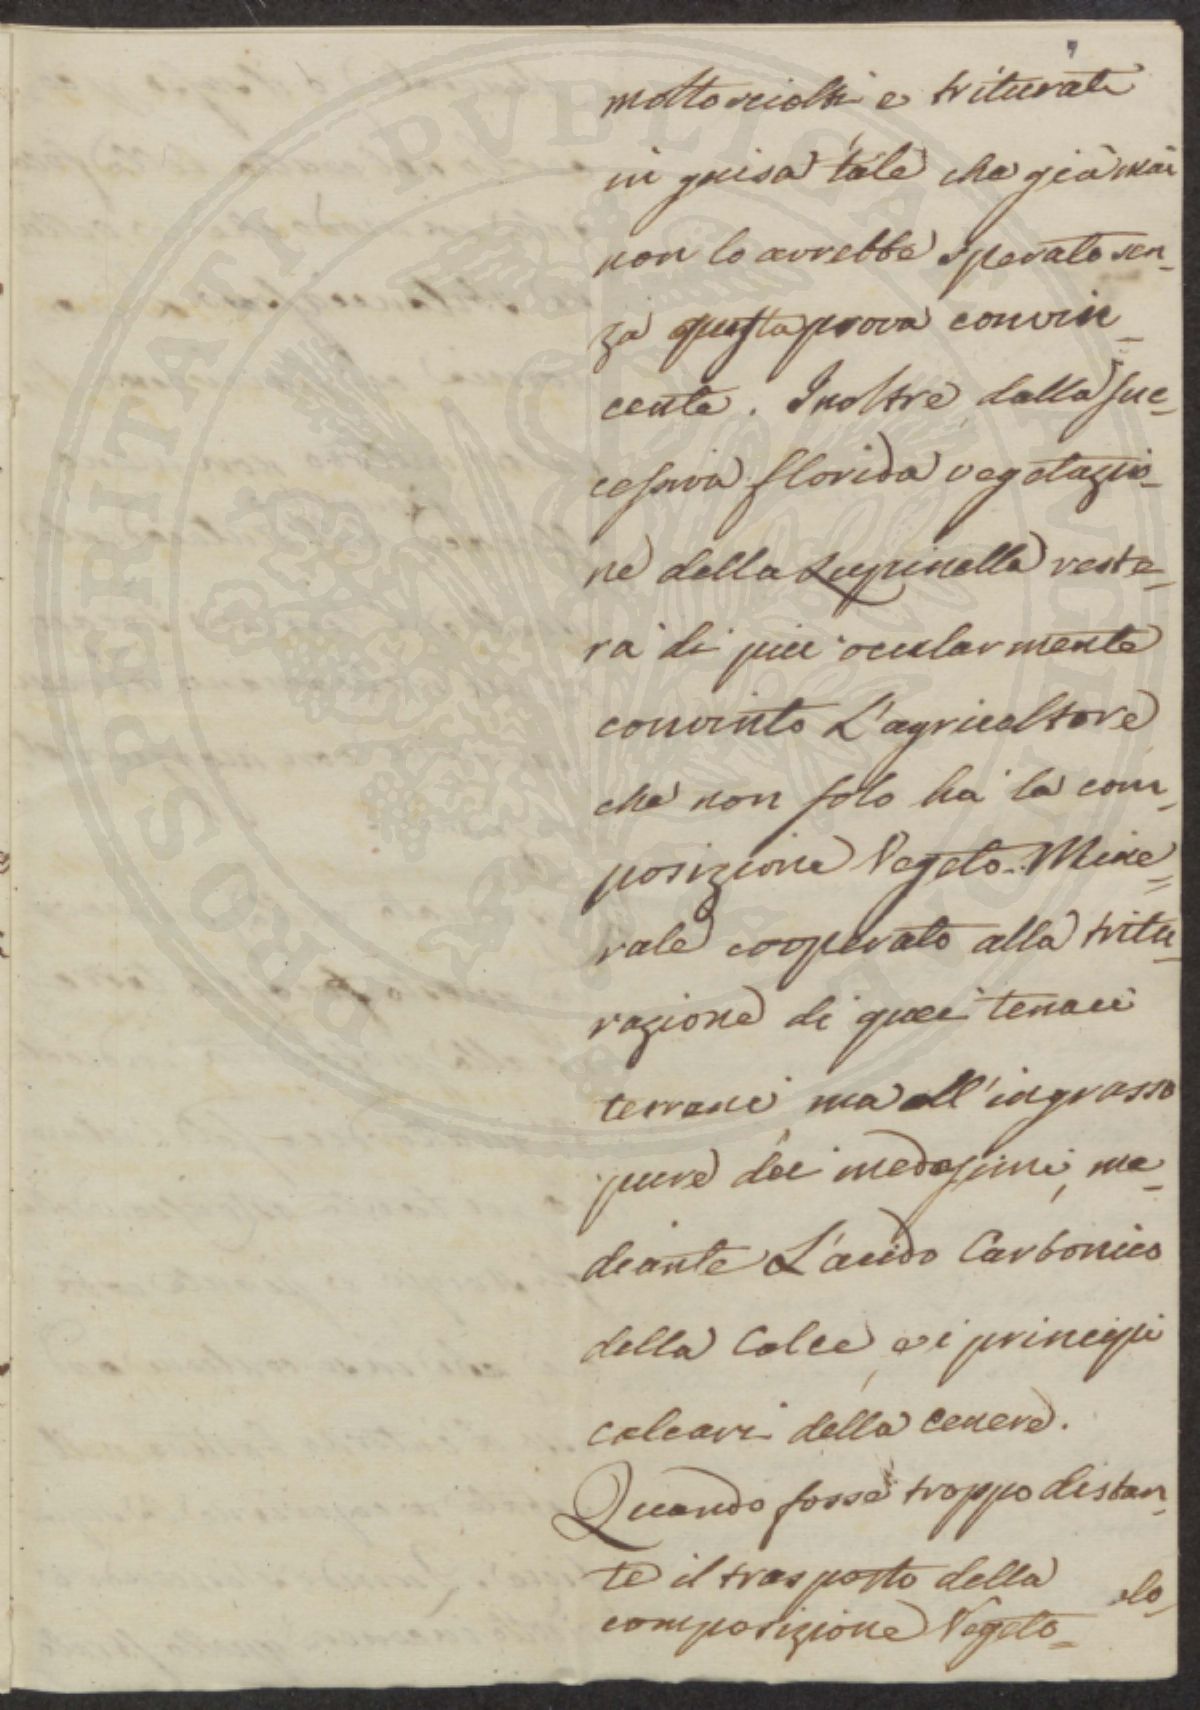 molto sciolti e triturati
in guisa tale che già mai
non lo avrebbe sperato sen-
za questa prova convin-
cente. Inoltre dalla suc-
cessiva florida vegetazio-
ne della Lupinella reste-
rà di più ocularmente
convinto L'agricoltore
che non solo ha la com-
posizione Vegeto-Mine=
rale cooperato alla tritu=
razione di quei tenaci
terreni, ma all'ingrasso
pure dei medesimi, me=
diante L'acido Carbonico
della Calce, e i principi
calcari della cenere.
Quando fosse troppo distan-
te il trasporto della
composizione Vegeto=
lo-
PROSPERITATI PVBLICAE AVGENDAE